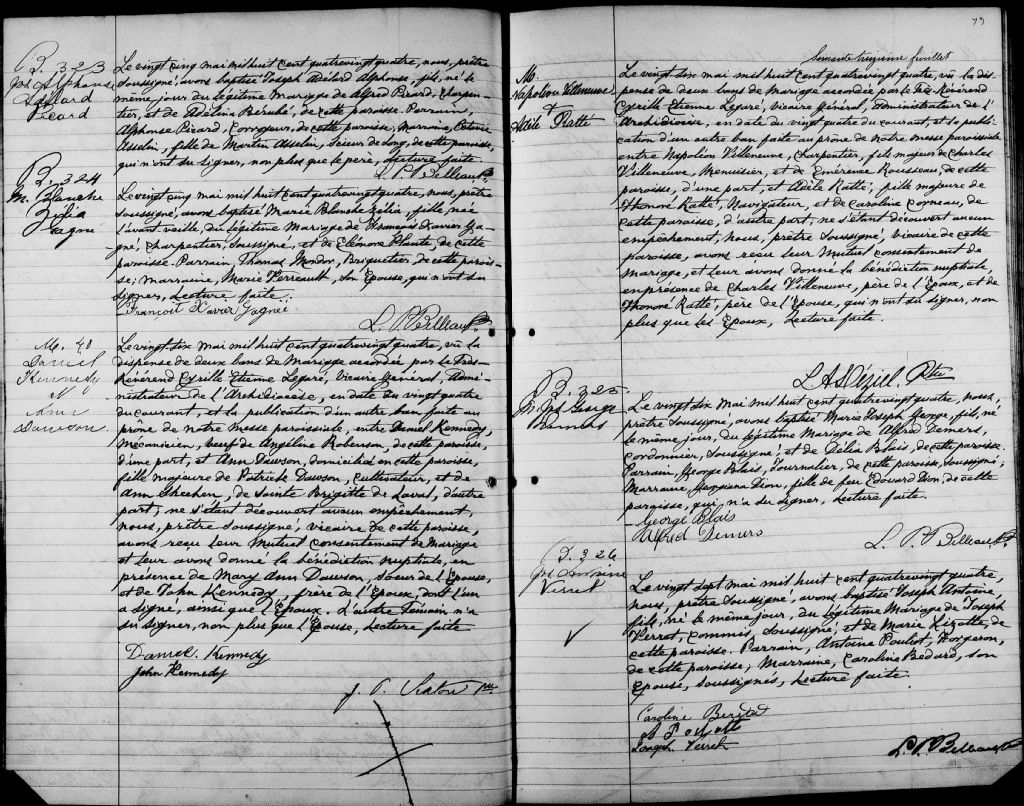 B. 323
Jos. Alphonse
Adélard
Picard
Le vingt cinq mai mil huit cent quatrevingt quatre, nous, prêtre
soussigné, avons baptisé Joseph Adélard Alphonse, fils, né le
même jour, du légitime Mariage de Alfred Picard, Charpen-
tier, et de Adélina Bérubé, de cette paroisse. Parrain,
Alphonse Picard, Corroyeur, de cette paroisse, Marraine,
Asselin, fille de Martin Asselin, Scieur de Long, de cette paroisse,
qui n'ont su signer, non plus que le père, Lecture faite.
L. P. Belleau Ptre
B. 324
M. Blanche
Zélia
Gagné
Le vingt cinq mai mil huit cent quatrevingt quatre, nous, prêtre
soussigné, avons baptisé Marie Blanche Zélia, fille, née
l'avant veille, du légitime Mariage de François Xavier Ga-
gné, Charpentier, soussigné, et de Eléonore Plante, de cette
paroisse. Parrain, Thomas Mondor, Briquetier, de cette parois-
se; Marraine, Marie Verreault, son Epouse, qui n'ont su
signer, Lecture faite.
François Xavier Gagné
L. P. Belleau Ptre
M. 40
Daniel
Kennedy
&
Ann
Dawson
Le vingt six mai mil huit cent quatrevingt quatre, vu la
dispense de deux bans de Mariage accordée par le Très
Révérend Cyrille Etienne Légaré, Vicaire Général, Admi-
nistrateur de l'Archidiocèse, en date du vingt quatre
du courant, et la publication d'un autre ban faite au
prône de notre messe paroissiale, entre Daniel Kennedy,
Mécanicien, veuf de Angéline Roberson, de cette paroisse,
d'une part, et Ann Dawson, domiciliée en cette paroisse,
fille majeure de Patrick Dawson, Cultivateur, et de
Ann Sheehen, de Sainte Brigitte de Laval, d'autre
part; ne s'étant découvert aucun empêchement,
nous, prêtre soussigné, vicaire de cette paroisse,
avons reçu leur Mutuel consentement de Mariage
et leur avons donné la bénédiction nuptiale, en
présence de Mary Ann Dawson, Soeur de l'Epouse,
et de John Kennedy, frère de l'Epoux, dont l'un
a signé, ainsi que l'Epoux. L'autre témoin n'a
su signer, non plus que l'Epouse, Lecture faite
Daniel. Kennedy
John Kennedy
79
Soixante treizième feuillet
M.
Napoléon Villeneuve
&
Adèle Ratté
Le vingt six mai mil huit cent quatrevingt quatre, vu la dis-
pense de deux bans de Mariage accordée par le Très Révérend
Cyrille Etienne Légaré, Vicaire Général, Administrateur de l'
Archidiocèse, en date du vingt quatre du courant, et la publi-
cation d'un autre ban faite au prône de notre messe paroissiale
entre Napoléon Villeneuve, Charpentier, fils majeur de Charles
Villeneuve, Menuisier, et de Emérence Rousseau, de cette
paroisse, d'une part, et Adèle Ratté, fille majeure de
Honoré Ratté, Navigateur, et de Caroline Corneau, de
cette paroisse, d'autre part, ne s'étant découvert aucun
empêchement, Nous, prêtre soussigné, vicaire de cette
paroisse, avons reçu leur Mutuel consentement de
mariage, et leur avons donné la bénédiction nuptiale,
en présence de Charles Villeneuve, père de l'Epoux, et de
Honoré Ratté, père de l'Epouse, qui n'ont su signer, non
plus que les Epoux, Lecture faite.
L A Déziel Ptre
B. 325
M. Jos. George
Demers
Le vingt six mai mil huit cent quatrevingt quatre, nous,
prêtre soussigné, avons baptisé Marie Joseph George, fils, né
le même jour, du légitime Mariage de Alfred Demers,
Cordonnier, soussigné, et de Délia Blais, de cette paroisse.
Parrain, George Blais, Journalier, de cette paroisse, soussigné;
Marraine, Georgiana Dion, fille de feu Edouard Dion, de cette
paroisse, qui n'a su signer, Lecture faite.
George Blais
Alfred Demers
L. P. Belleau Ptre
B. 326
Jos. Antoine
Verret
Le vingt sept mai mil huit cent quatrevingt quatre,
nous, prêtre soussigné, avons baptisé Joseph Antoine,
fils, né le même jour, du légitime Mariage de Joseph
Verret, Commis, soussigné, et de Marie Lizotte, de
cette paroisse. Parrain, Antoine Pouliot, Forgeron,
de cette paroisse; Marraine, Caroline Bedard, son
Epouse, soussignés, Lecture faite.
Caroline
Joseph Verret
L. P. Belleau Ptre